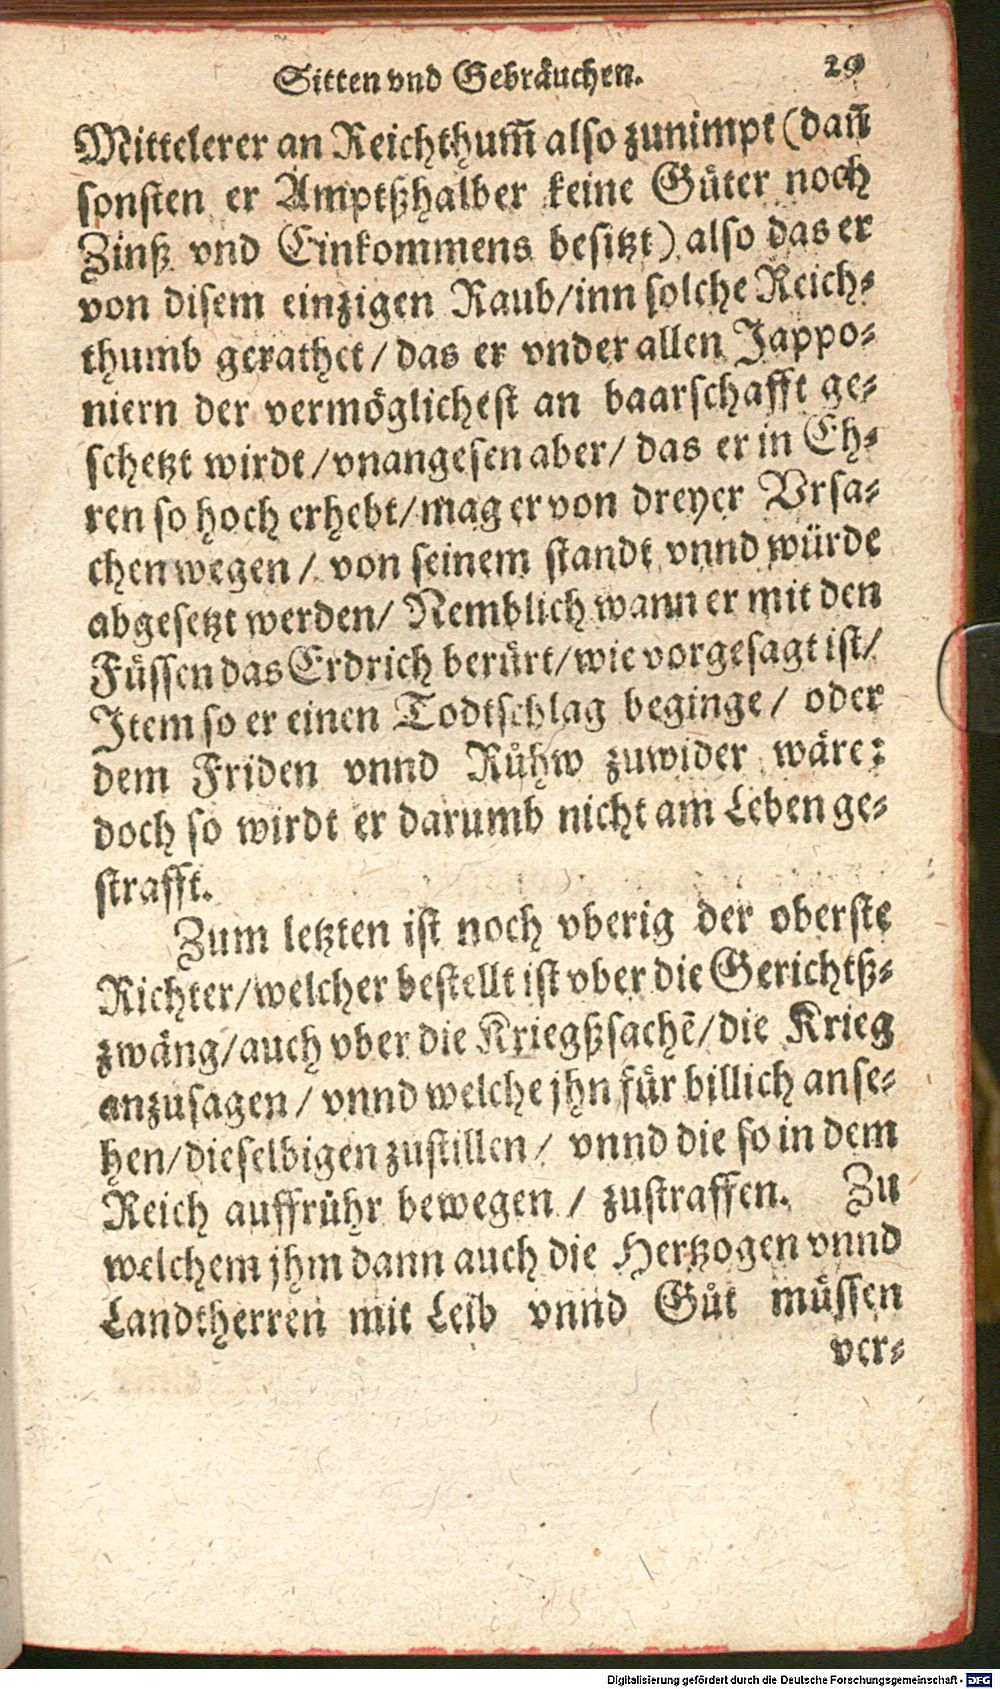 Sitten vnd Gebräuchen. 29
Mittelerer an Reichthum̃ also zunimpt (dañ
sonsten er Amptßhalber keine Güter noch
Zinß vnd Einkommens besitzt) also das er
von disem einzigen Raub/inn solche Reich-
thumb gerathet/ das er vnder allen Jappo-
niern der vermöglichest an baarschafft ge-
schetzt wirdt/vnangesen aber/ das er in Eh-
ren so hoch erhebt/mag er von dreyer Vrsa-
chen wegen/ von seinem standt vnnd würde
abgesetzt werden/ Nemblich wann er mit den
Füssen das Erdrich berürt/wie vorgesagt ist/
Item so er einen Todtschlag beginge/ oder
dem Friden vnnd Růhw zuwider wäre:
doch so wirdt er darumb nicht am Leben ge-
strafft.
Zum letzten ist noch vberig der oberste
Richter/welcher bestellt ist vber die Gerichtß-
zwäng/auch vber die Kriegßsachẽ/die Krieg
anzusagen/ vnnd welche jhn für billich anse-
hen/dieselbigen zustillen/ vnnd die so in dem
Reich auffrühr bewegen/ zustraffen. Zu
welchem jhm dann auch die Hertzogen vnnd
Landtherren mit Leib vnnd Gůt müssen
ver-
Digitalisierung gefördert durch die Deutsche Forschungsgemeinschaft - DFG